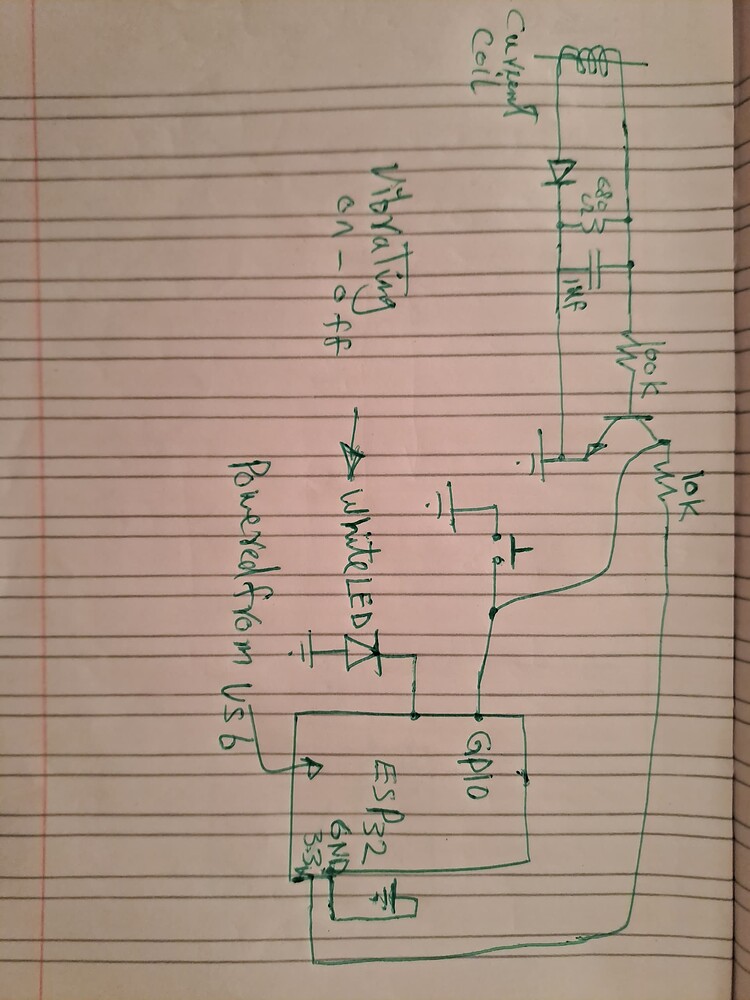 Current
Coil
680
Ω
1µF
100K
10K
Vibrating
on-off
White LED
Powered from USb
GPIO
ESP32
GND
3.3V